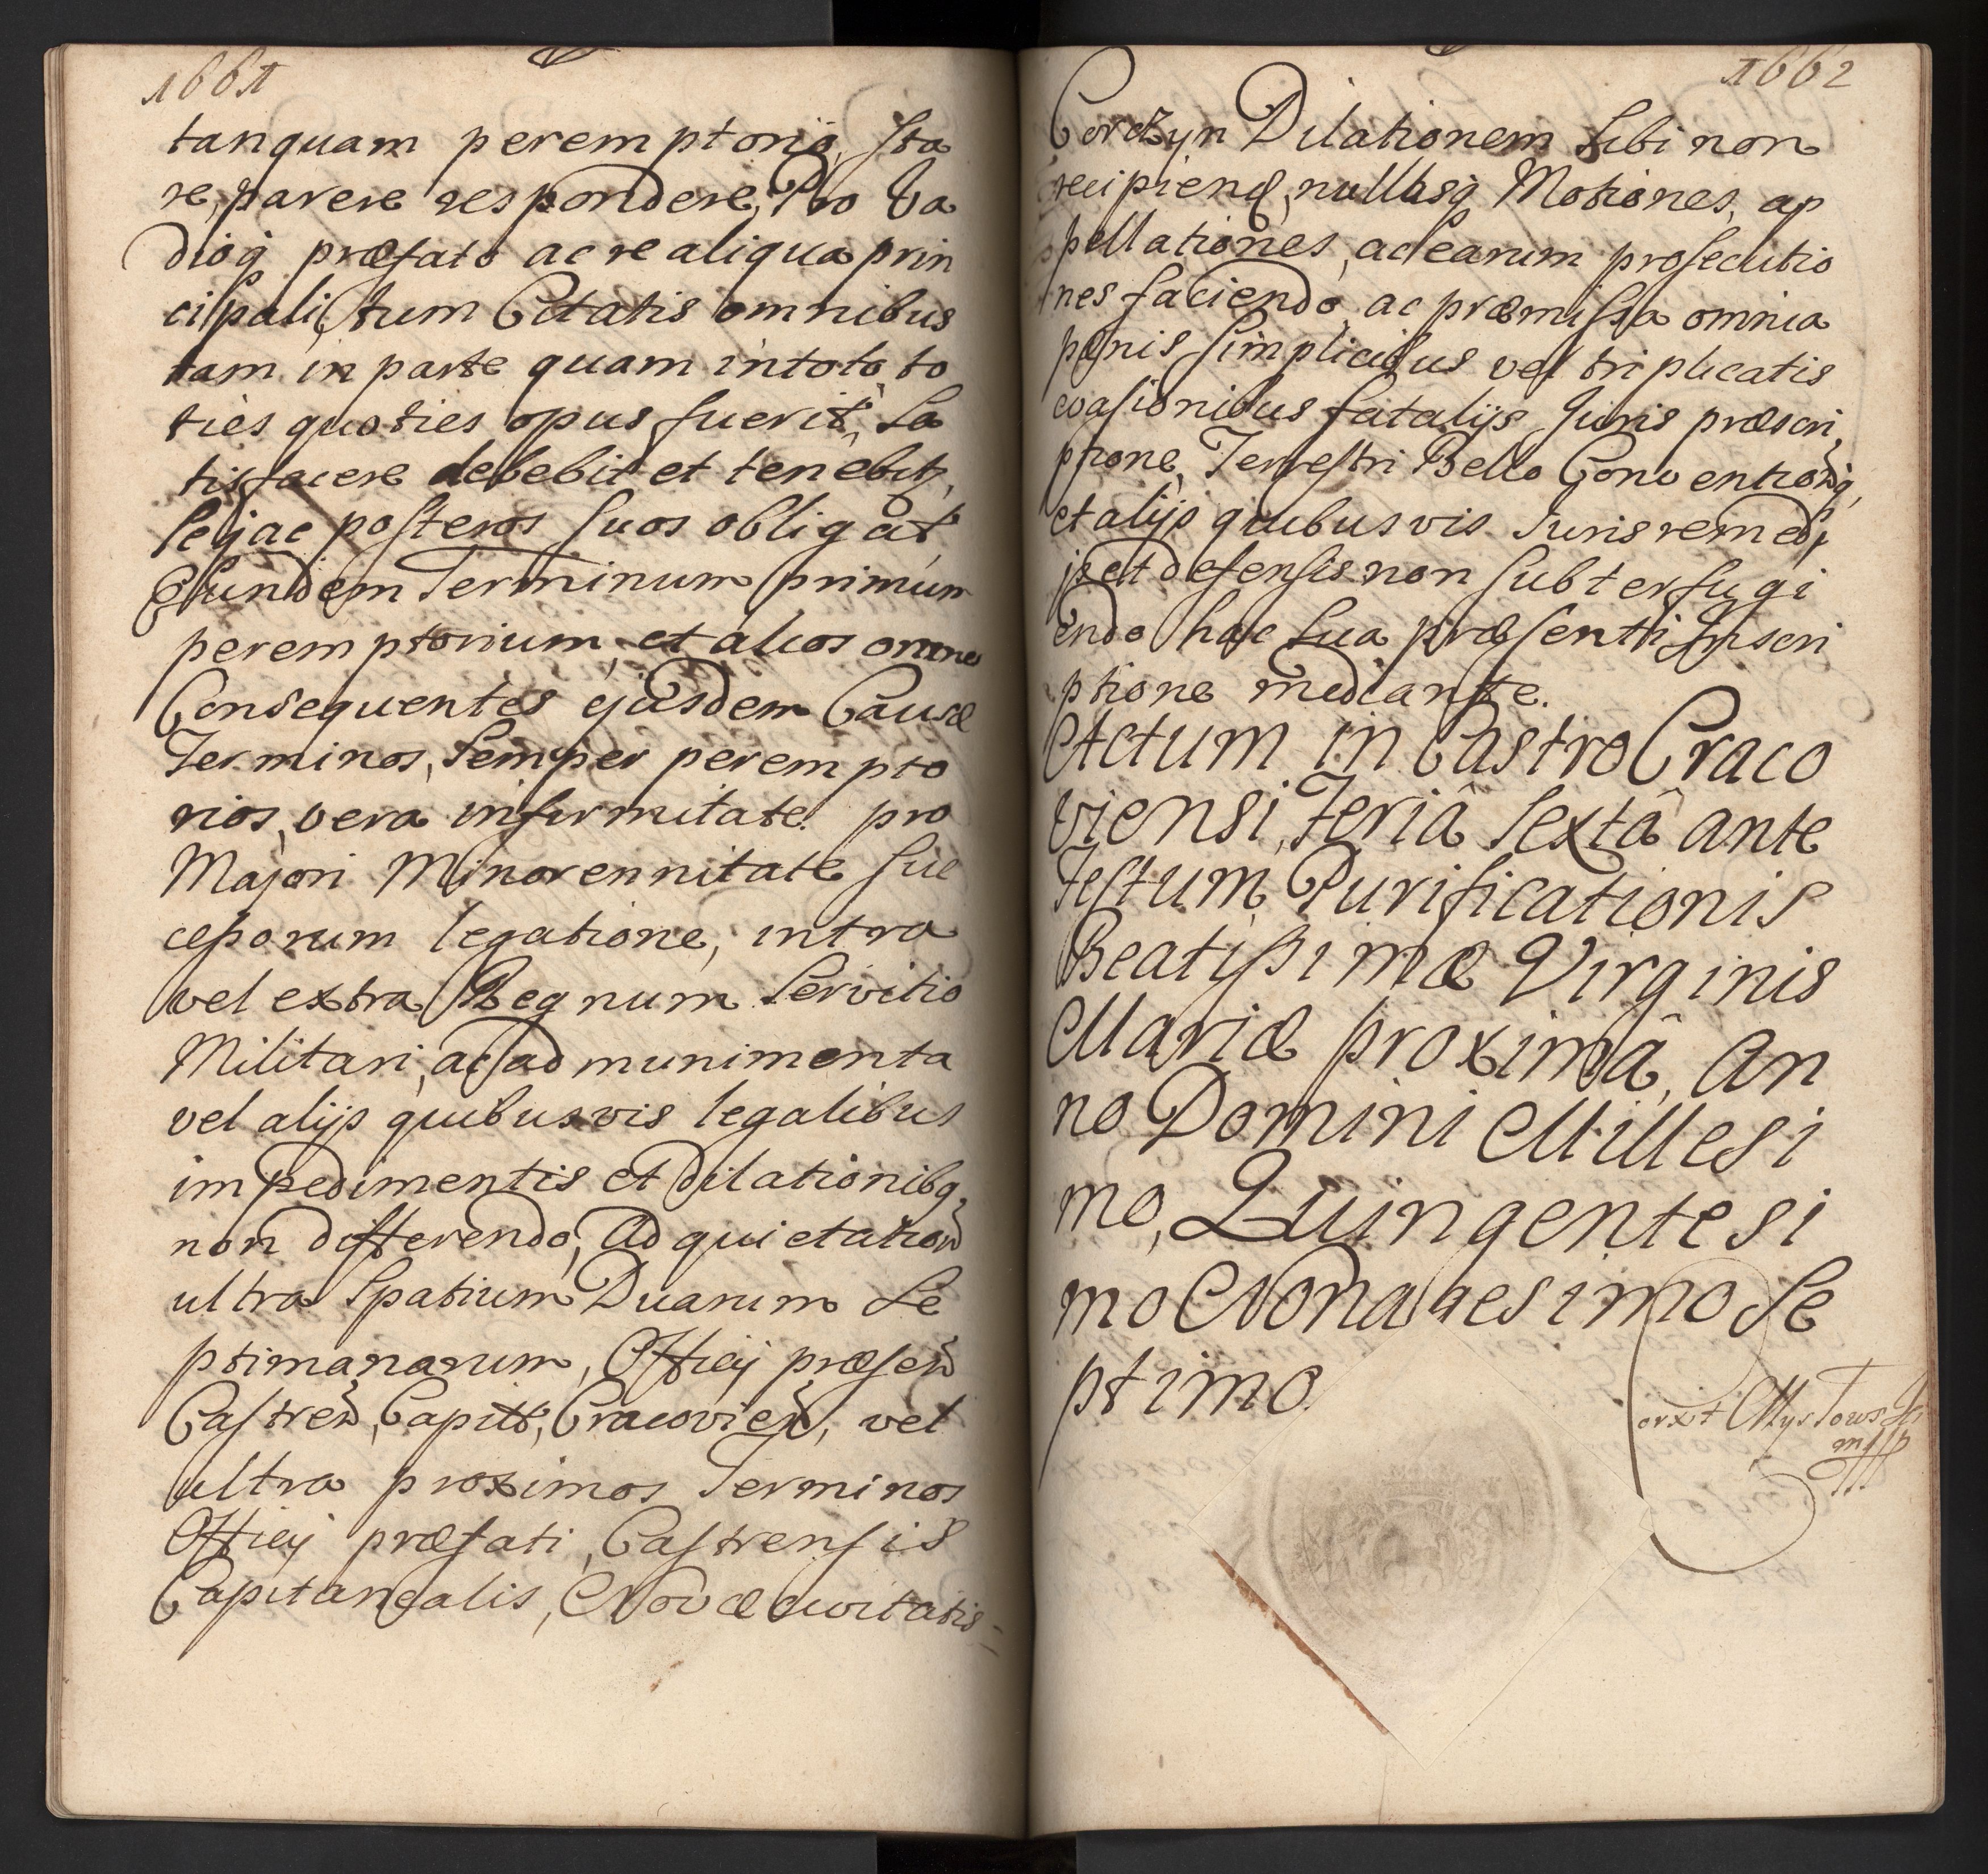 1661
tanquam peremptorio, sta
re, parere respondere, Pro Va
dioq præfato ac re aliqua prin
cipali, tum Citatis omnibus
tam in parte quam in toto, to
ties quoties opus fuerit, Sa
tisfacere debebit et tenebit,
se, ac posteros suos obligat,
Eundem Terminum primum
peremptorium, et alios omnes
Consequentes ejusdem Causæ
Terminos, Semper perempto
rios, vera infirmitate pro
Majori Minorennitate suc
cessorum legatione, intra
vel extra Regnum Servitio
Militari, ac ad munimenta
vel alijs quibusvis legalibus
impedimentis et dilationibq
non differendo, Ad quietation
ultra Spatium Duarum Se
ptimanarum, Officij præsen
Castren, Capitt, Cracovien, vel
ultra proximos Terminos
Officij præfati, Castrensis
Capitanealis, Novæ Civitatis
1662
Corczyn Dilationem Sibi non
recipiend, nullasq Motiones, ap
pellationes, ac earum prosecutio
nes faciendo, ac præmissa omnia
pœnis simplicibus vel triplicatis
evasionibus fatalijs Juris præscri
ptione, Terrestri Bello Conventionq,
et alijs quibusvis Juris remedi
js et defensis non subterfugi
endo hac Sua præsenti Inscri
ptione mediante.
Actum in Castro Craco
viensi, Feriâ Sextâ ante
Festum Purificationis
Beatissimæ Virginis
Mariæ proximâ, An
no Domini Millesi
mo, Quingentesi
mo Nonagesimo Se
ptimo.